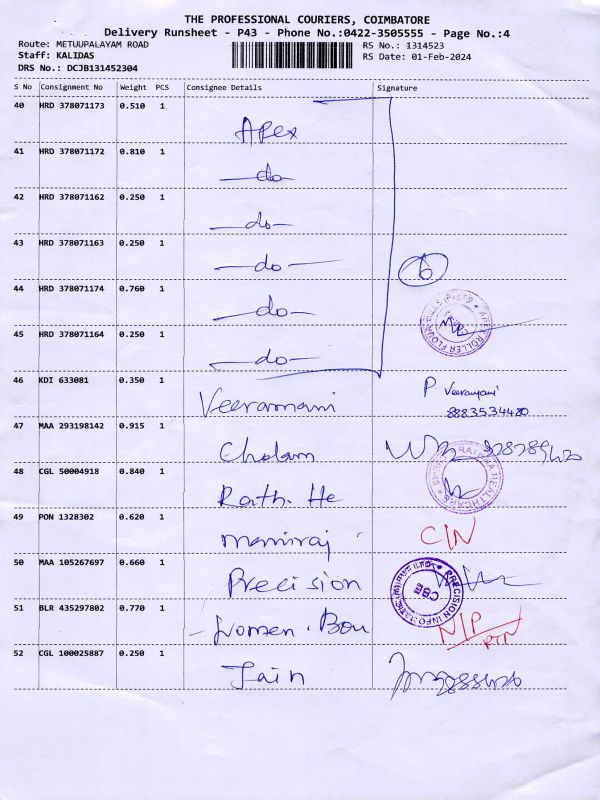 THE PROFESSIONAL COURIERS, COIMBATORE
Delivery Runsheet - P43 - Phone No.:0422-3505555 - Page No.:4
Route: METUUPALAYAM ROAD RS No.: 1314523
Staff: KALIDAS RS Date: 01-Feb-2024
DRS No.: DCJB131452304
S No Consignment No Weight PCS Consignee Details Signature
40 HRD 378071173 0.510 1
Apex
41 HRD 378071172 0.810 1
—do—
42 HRD 378071162 0.250 1
—do—
43 HRD 378071163 0.250 1
—do—
6
44 HRD 378071174 0.760 1
—do—
45 HRD 378071164 0.250 1
—do—
46 KDI 633081 0.350 1
Veeramani P Veeramani
8883534420
47 MAA 293198142 0.915 1
Cholam
48 CGL 50004918 0.840 1
Rath. He
49 PON 1328302 0.620 1
maniraj C/N
50 MAA 105267697 0.660 1
Precision
51 BLR 435297802 0.770 1
Women. Bou N/P
RTN
52 CGL 100025887 0.250 1
Jain